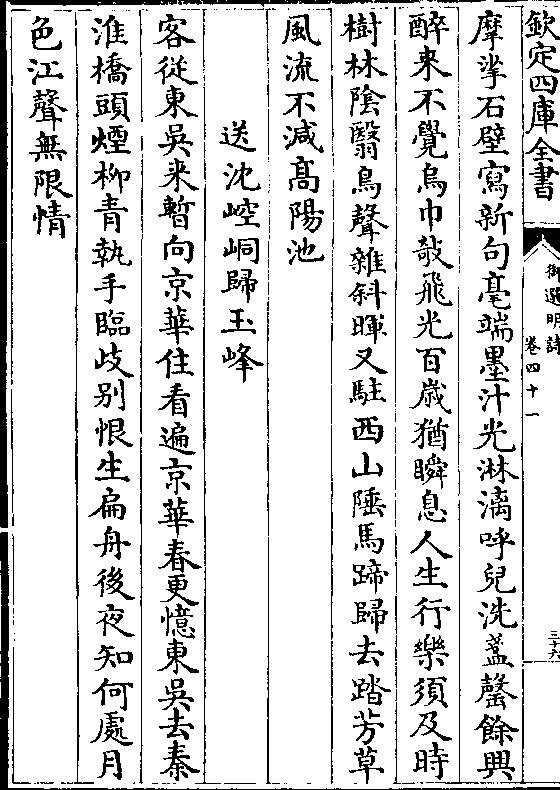 欽定四庫全書
御選明詩
卷四十一
三十六
摩挲石壁寫新句毫端墨汁光淋漓呼兒洗盞罄餘興
醉來不覺烏巾敧飛光百歳猶瞬息人生行樂須及時
樹林陰翳鳥聲雜斜暉又駐西山陲馬蹄歸去踏芳草
風流不減髙陽池
送沈崆峒歸玉峰
客從東吳来暫向京華住看遍京華春更憶東吳去秦
淮橋頭煙柳青執手臨歧别恨生扁舟後夜知何處月
色江聲無限情